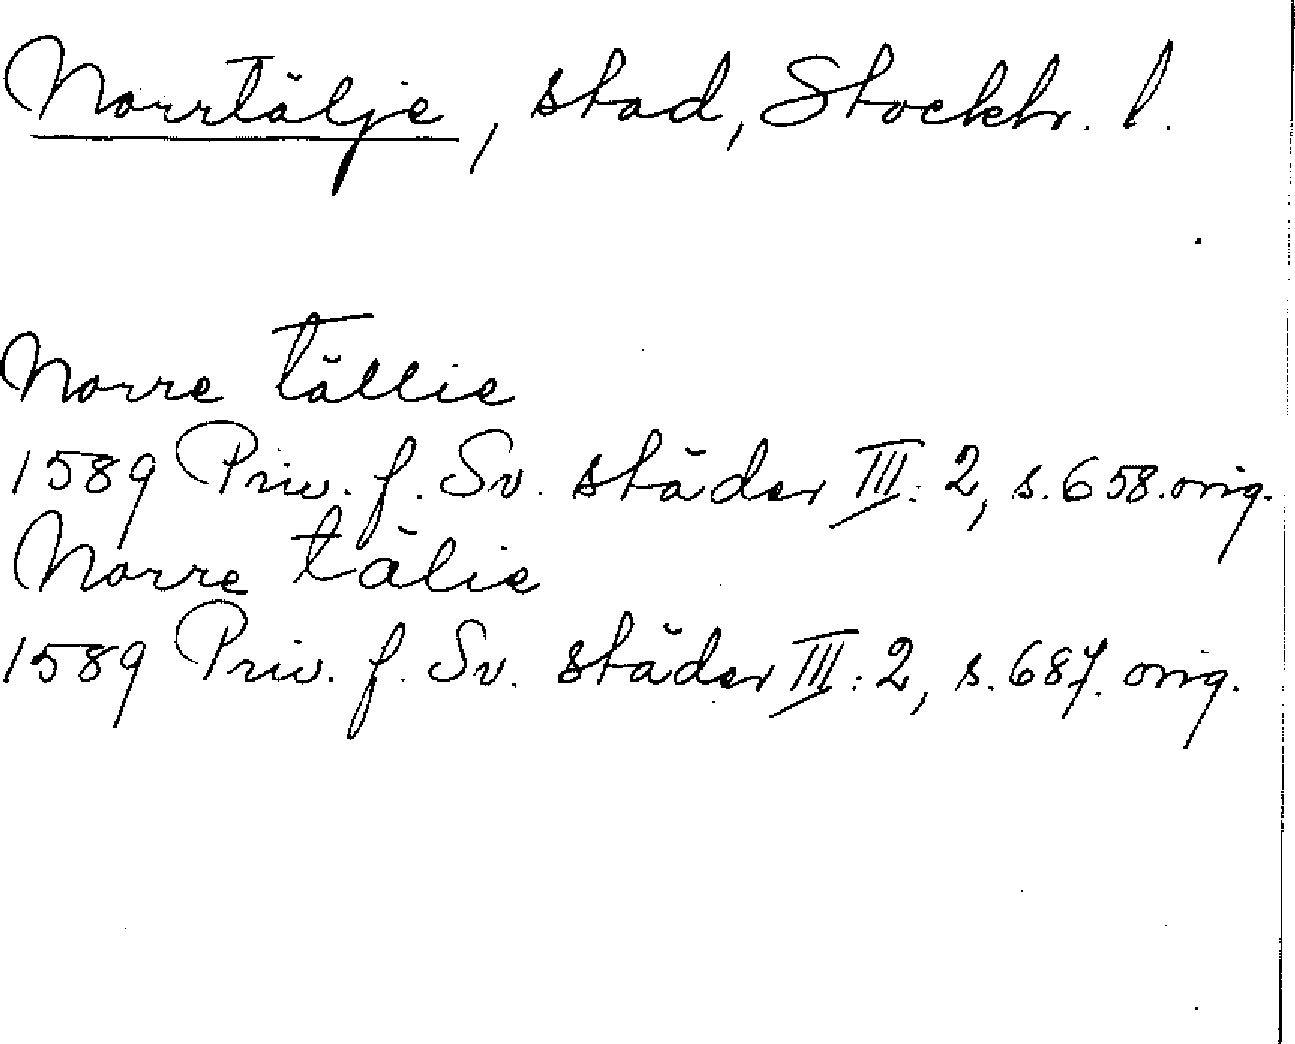 Norrtälje, stad, Stockh. l.
Norre Tällie
1589 Priv. f. Sv. städer III: 2, s. 658. orig.
Norre tälie
1589 Priv. f. Sv. städer III: 2, s. 687. orig.